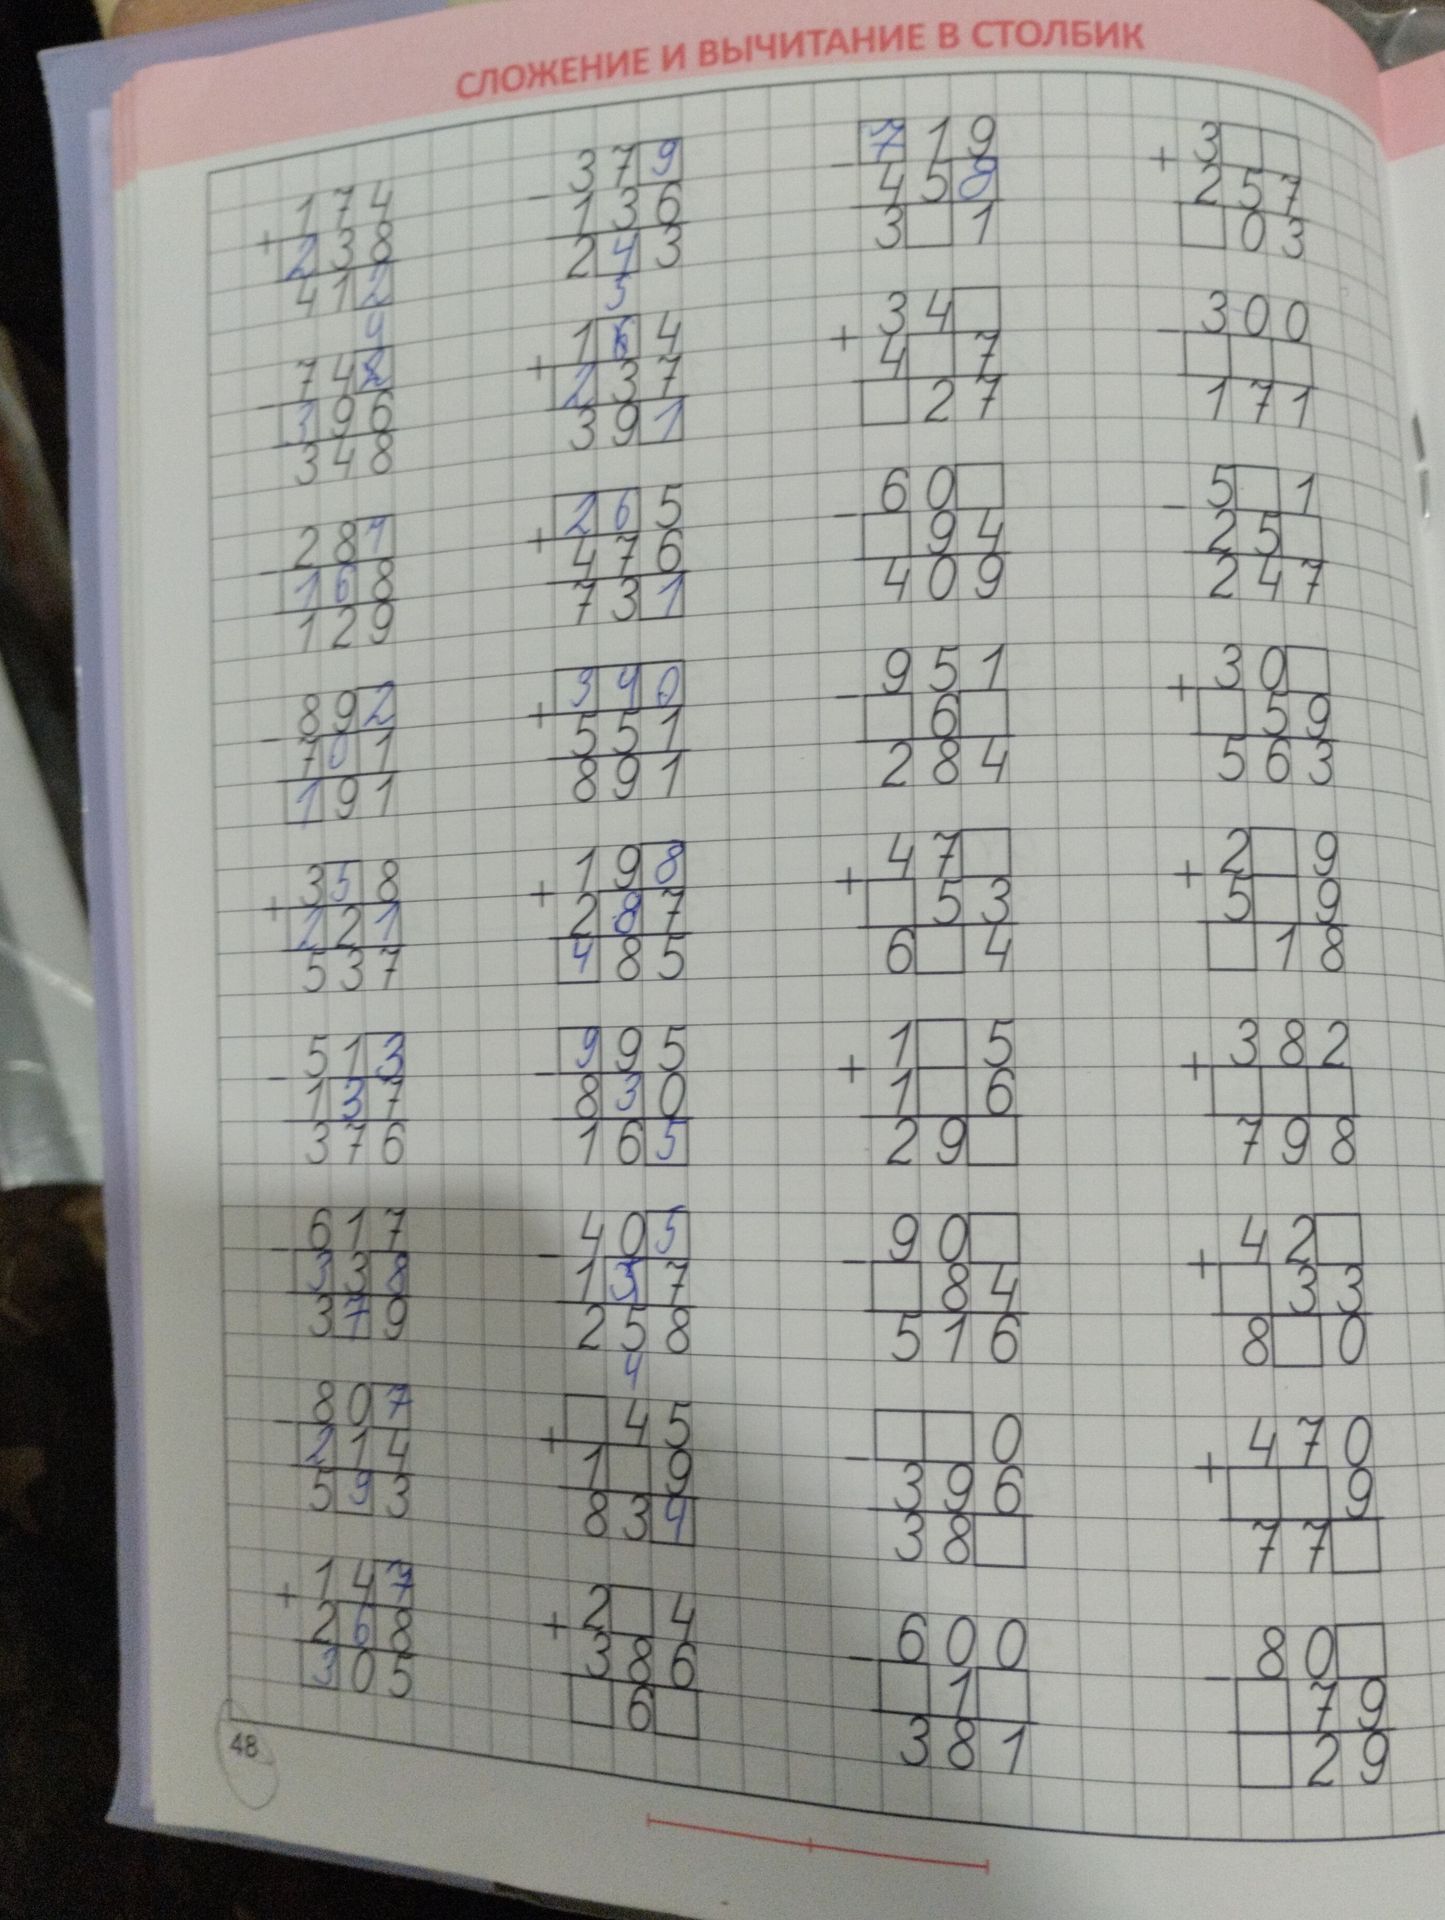 СЛОЖЕНИЕ И ВЫЧИТАНИЕ В СТОЛБИК
174
+
238
412
4
742
-
396
348
287
-
168
129
892
-
701
191
358
+
221
537
513
-
137
376
617
-
338
379
807
-
214
593
147
+
268
305
379
-
136
243
5
164
+
237
391
265
+
476
731
340
+
551
891
198
+
287
485
995
-
830
165
405
-
137
258
4
45
+
1 9
834
2 4
+
386
6
719
-
458
3 1
34
+
4 7
27
60
-
94
409
951
-
6
284
47
+
53
6 4
1 5
+
1 6
29
90
-
84
516
0
-
396
38
600
-
1
381
3
+
257
03
300
-
171
5 1
-
25
247
30
+
59
563
2 9
+
5 9
18
382
+
798
42
+
33
8 0
470
+
9
77
80
-
79
29
48